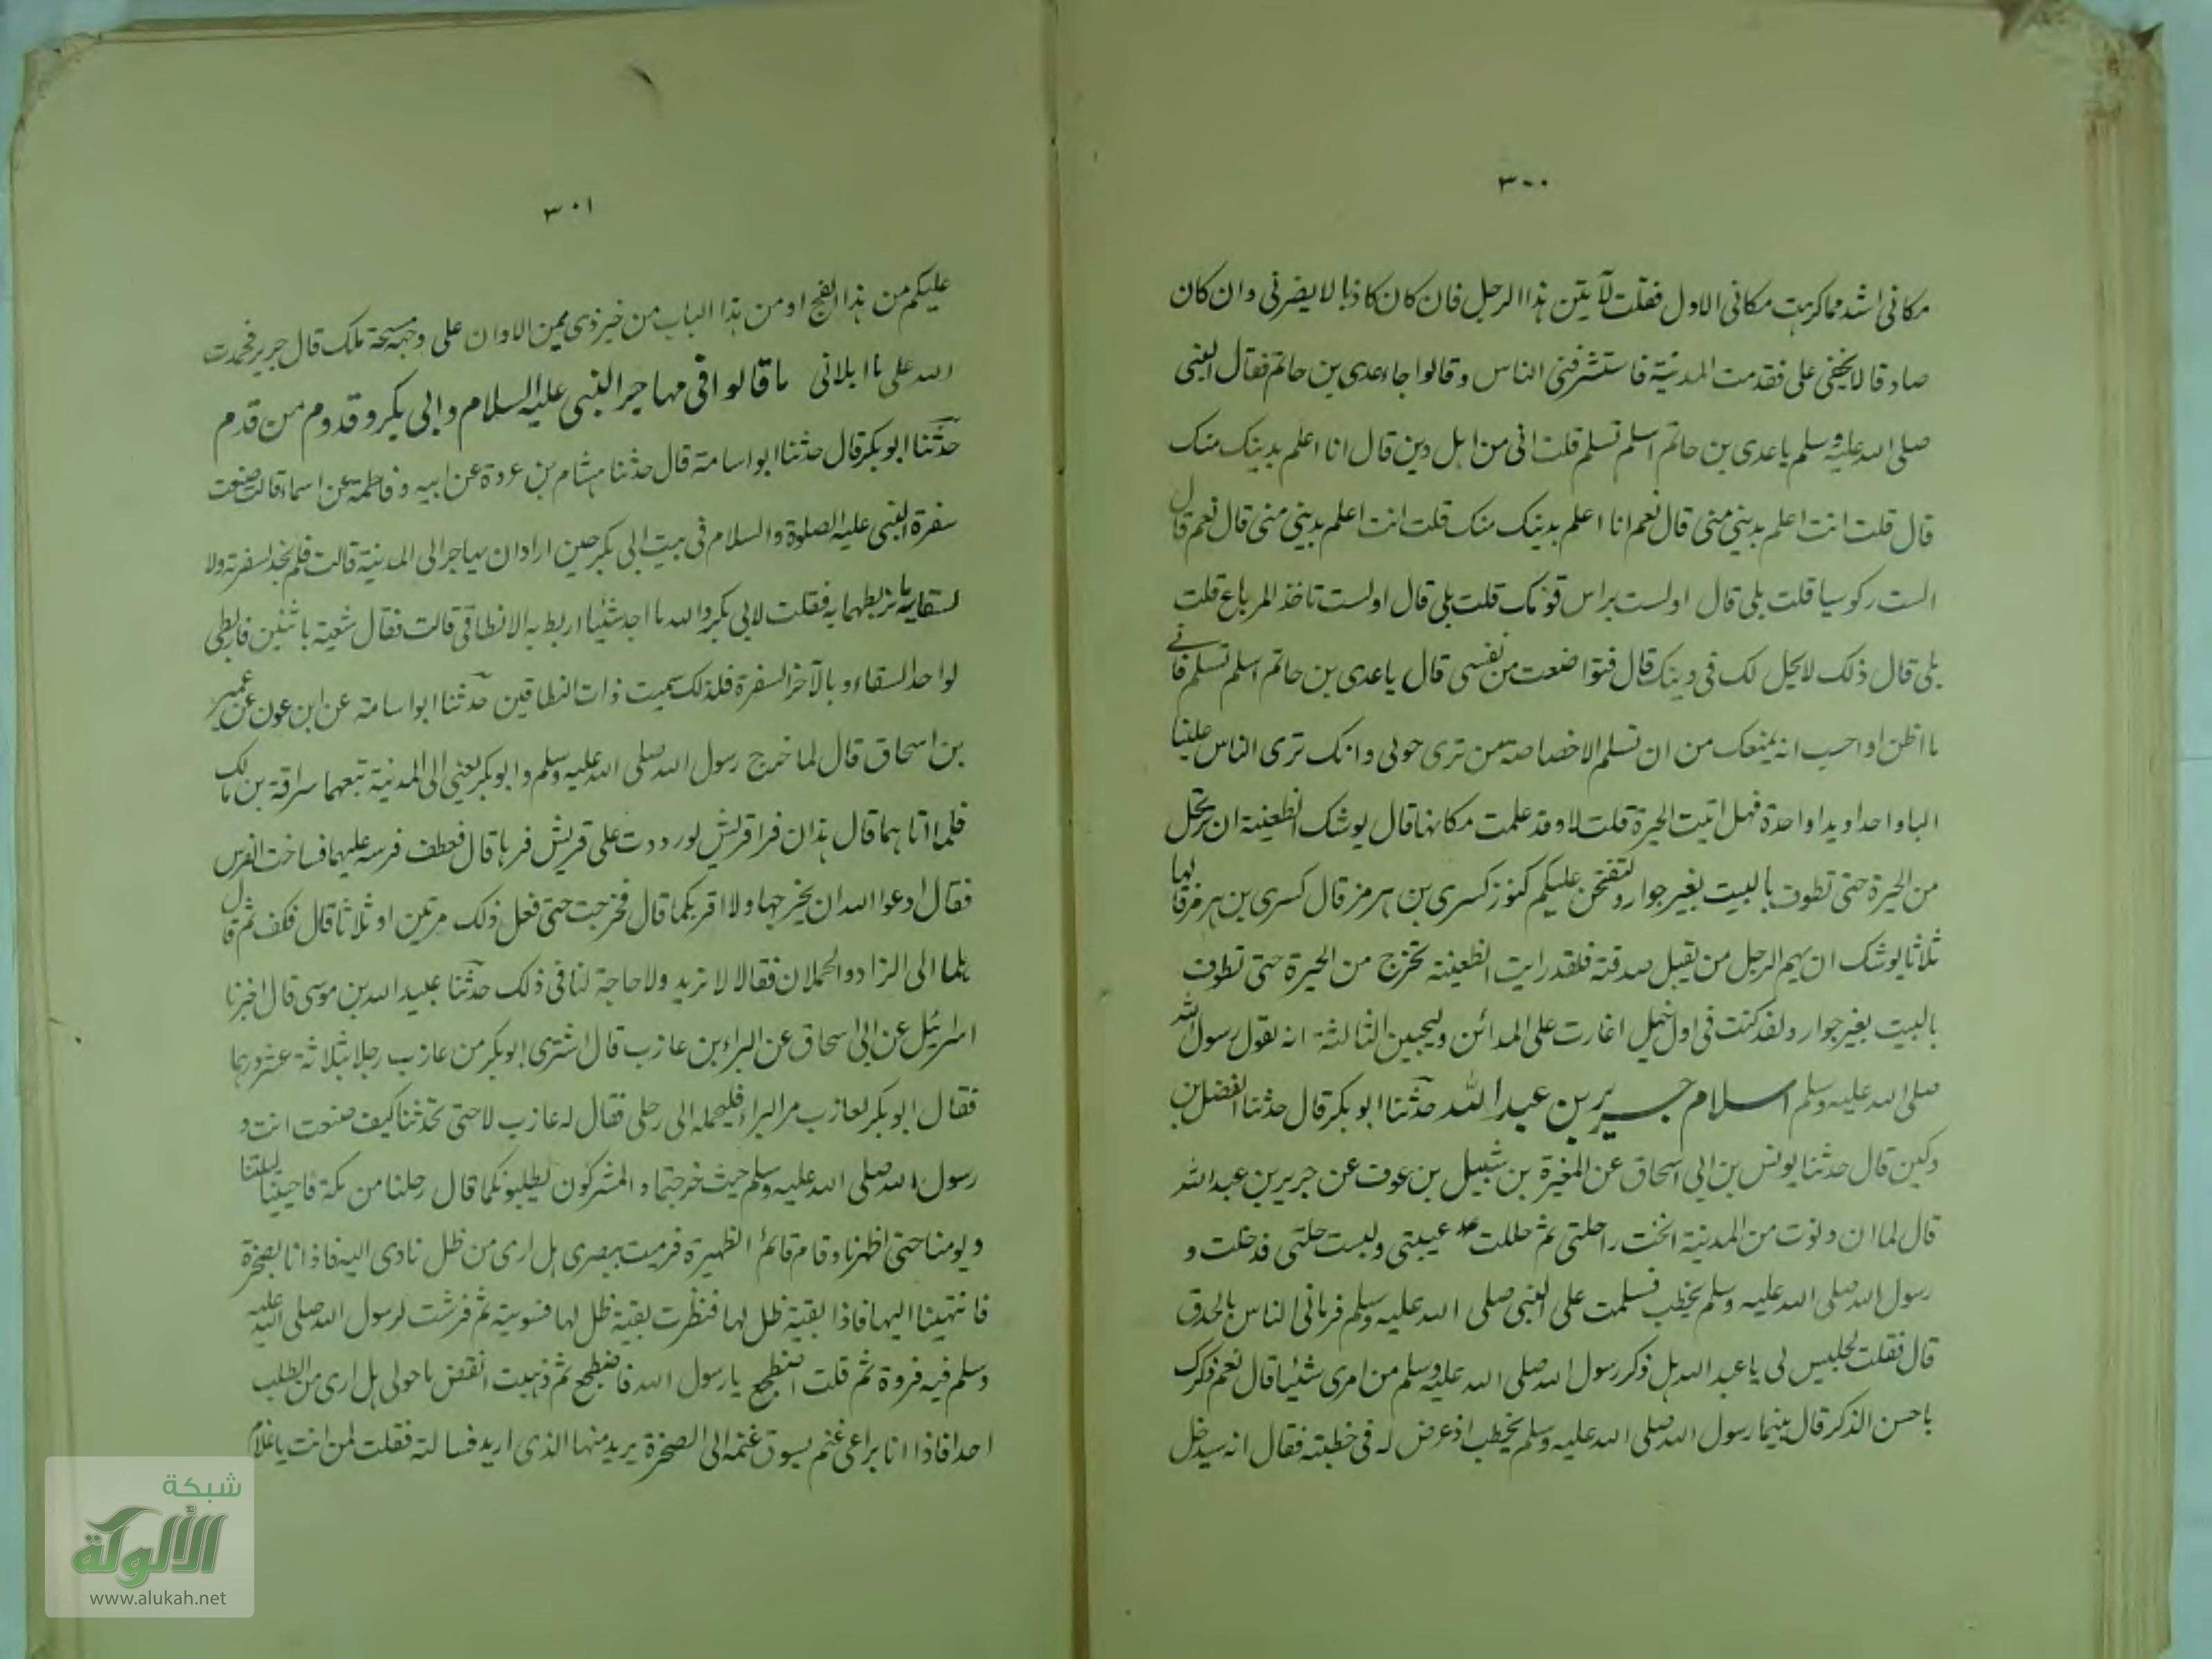 ٣٠٠
مكانى اشد مما كرهت مكانى الاول فقلت لآتين هذا الرجل فان كان كاذبا لا يضرنى وان كان
صادقا لا يخفى على فقدمت المدينة فاستشرفنى الناس وقالوا جاء عدى بن حاتم فقال النبى
صلى الله عليه وسلم يا عدى بن حاتم اسلم تسلم قلت انى من اهل دين قال انا اعلم بدينك منك
قال قلت انت اعلم بدينى منى قال نعم انا اعلم بدينك منك قلت انت اعلم بدينى منى قال نعم قال
الست ركوسيا قلت بلى قال اولست براس قومك قلت بلى قال اولست تاخذ المرباع قلت
بلى قال ذلك لا يحل لك فى دينك قال فتواضعت من نفسى قال يا عدى بن حاتم اسلم تسلم فانى
ما اظن او احسب انه يمنعك من ان تسلم الا خصاصة من ترى حولى وانك ترى الناس علينا
البا واحدا ويدا واحدة فهل اتيت الحيرة قلت لا وقد علمت مكانها قال يوشك الظعينة ان ترتحل
من الحيرة حتى تطوف بالبيت بغير جوار ولتفتحن عليكم كنوز كسرى بن هرمز قال كسرى بن هرمز قالها
ثلاثا يوشك ان يهم الرجل من يقبل صدقته فلقد رايت الظعينة تخرج من الحيرة حتى تطوف
بالبيت بغير جوار ولقد كنت فى اول خيل اغارت على المدائن وليجيين الثالثة انه لقول رسول الله
صلى الله عليه وسلم اسلام جرير بن عبد الله حدثنا ابو بكر قال حدثنا الفضل بن
دكين قال حدثنا يونس بن ابى اسحاق عن المغيرة بن شبيل بن عوف عن جرير بن عبد الله
قال لما ان دنوت من المدينة انخت راحلتى ثم حللت عيبتى ولبست حلتى فدخلت و
رسول الله صلى الله عليه وسلم يخطب فسلمت على النبى صلى الله عليه وسلم فرمانى الناس بالحدق
قال فقلت لجليس لى يا عبد الله هل ذكر رسول الله صلى الله عليه وسلم من امرى شيئا قال نعم ذكرك
باحسن الذكر قال بينما رسول الله صلى الله عليه وسلم يخطب اذ عرض له فى خطبته فقال انه سيدخل
٣٠١
عليكم من هذا الفج او من هذا الباب من خير ذى يمن الا وان على وجهه مسحة ملك قال جرير فحمدت
الله على ما ابلانى ما قالوا فى مهاجر النبى عليه السلام وابى بكر وقدوم من قدم
حدثنا ابو بكر قال حدثنا ابو اسامة قال حدثنا هشام بن عروة عن ابيه وفاطمة عن اسماء قالت صنعت
سفرة النبى عليه الصلوة والسلام فى بيت ابى بكر حين اراد ان يهاجر الى المدينة قالت فلم نجد لسفرته ولا
لسقايه ما نربطهما به فقلت لابى بكر والله ما اجد شيئا اربط به الا نطاقى قالت فقال شقيه باثنين فاربطى
لواحد السقاء وبالآخر السفرة فلذلك سميت ذات النطاقين حدثنا ابو اسامة عن ابن عون عن عمير
بن اسحاق قال لما خرج رسول الله صلى الله عليه وسلم وابو بكر يعنى الى المدينة تبعهما سراقة بن مالك
فلما اتاهما قال هذان فرا قريش لو رددت على قريش فرها قال فعطف فرسه عليهما فساخت الفرس
فقال ادعوا الله ان يخرجها ولا اقربكما قال فخرجت حتى فعل ذلك مرتين او ثلاثا قال فكف ثم قال
هلما الى الزاد والحملان فقالا لا نريد ولا حاجة لنا فى ذلك حدثنا عبيد الله بن موسى قال اخبرنا
اسرائيل عن ابى اسحاق عن البراء بن عازب قال اشترى ابو بكر من عازب رحلا بثلاثة عشر درهما
فقال ابو بكر لعازب مر البراء فليحمله الى رحلى فقال له عازب لا حتى تحدثنا كيف صنعت انت و
رسول الله صلى الله عليه وسلم حيث خرجتما والمشركون يطلبونكما قال رحلنا من مكة فاحيينا ليلتنا
ويومنا حتى اظهرنا وقام قائم الظهيرة فرميت ببصرى هل ارى من ظل ناوى اليه فاذا انا بصخرة
فانتهينا اليها فاذا بقية ظل لها فنظرت بقية ظل لها فسويته ثم فرشت لرسول الله صلى الله عليه
وسلم فيه فروة ثم قلت اضطجع يا رسول الله فاضطجع ثم ذهبت انقض ما حولى هل ارى من الطلب
احدا فاذا انا براعى غنم يسوق غنمه الى الصخرة يريد منها الذى اريد فسالته فقلت لمن انت يا غلام
شبكة
الألوكة
www.alukah.net